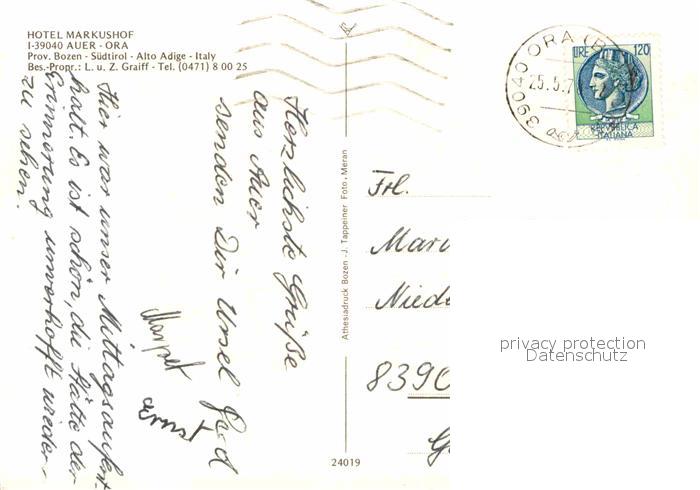 HOTEL MARKUSHOF
I-39040 AUER - ORA
Prov. Bozen - Südtirol - Alto Adige - Italy
Bes.-Propr.: L. u. Z. Graiff - Tel. (0471) 8 00 25
Herzlichste Grüße
aus Auer
senden Dir Ursel
Hier war unser Mittagsaufent-
halt. Es ist schön, die Stätte der
Erinnerung unverhofft wieder-
zu sehen.
Margret
Ernst
Athesiadruck Bozen - J. Tappeiner Foto, Meran
24019
39040 ORA (B
25.5.7
LIRE 120
REPUBBLICA
ITALIANA
Frl.
Mari
Niede
8390
privacy protection
Datenschutz